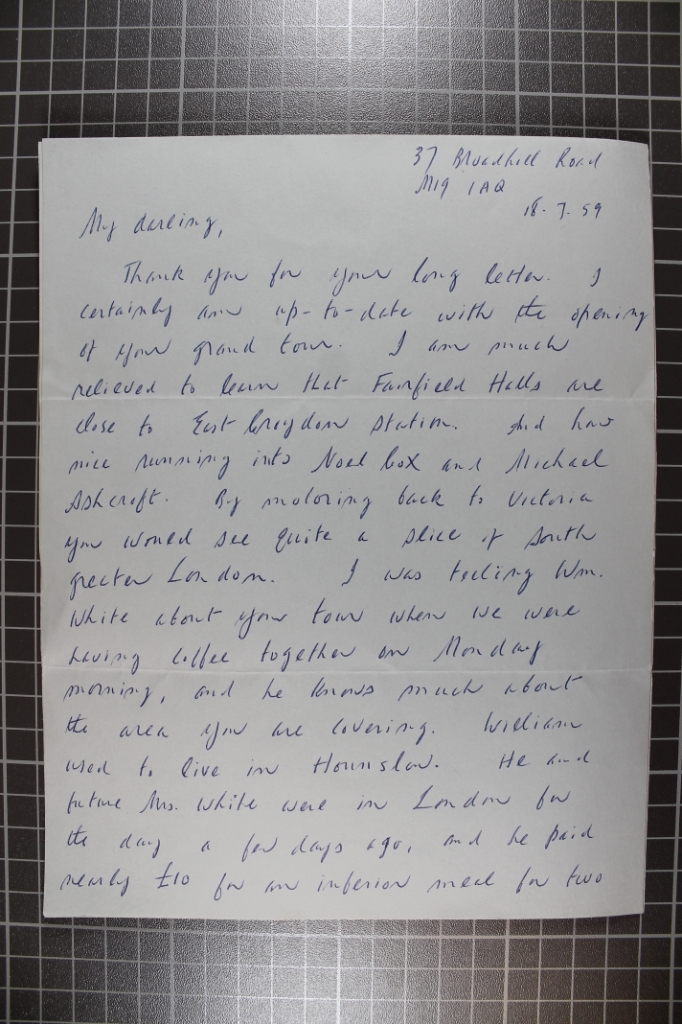 37 Broadhill Road
M19 1AQ
18. 7. 59
My darling,
Thank you for your long letter. I
certainly am up-to-date with the opening
of your grand tour. I am much
relieved to learn that Fairfield Halls are
close to East Croydon Station. And how
nice running into Noel Cox and Michael
Ashcroft. By motoring back to Victoria
you would see quite a slice of south
greater London. I was telling Wm.
White about your tour when we were
having coffee together on Monday
morning, and he knows much about
the area you are covering. William
used to live in Hounslow. He and
future Mrs. White were in London for
the day a few days ago, and he paid
nearly £10 for an inferior meal for two